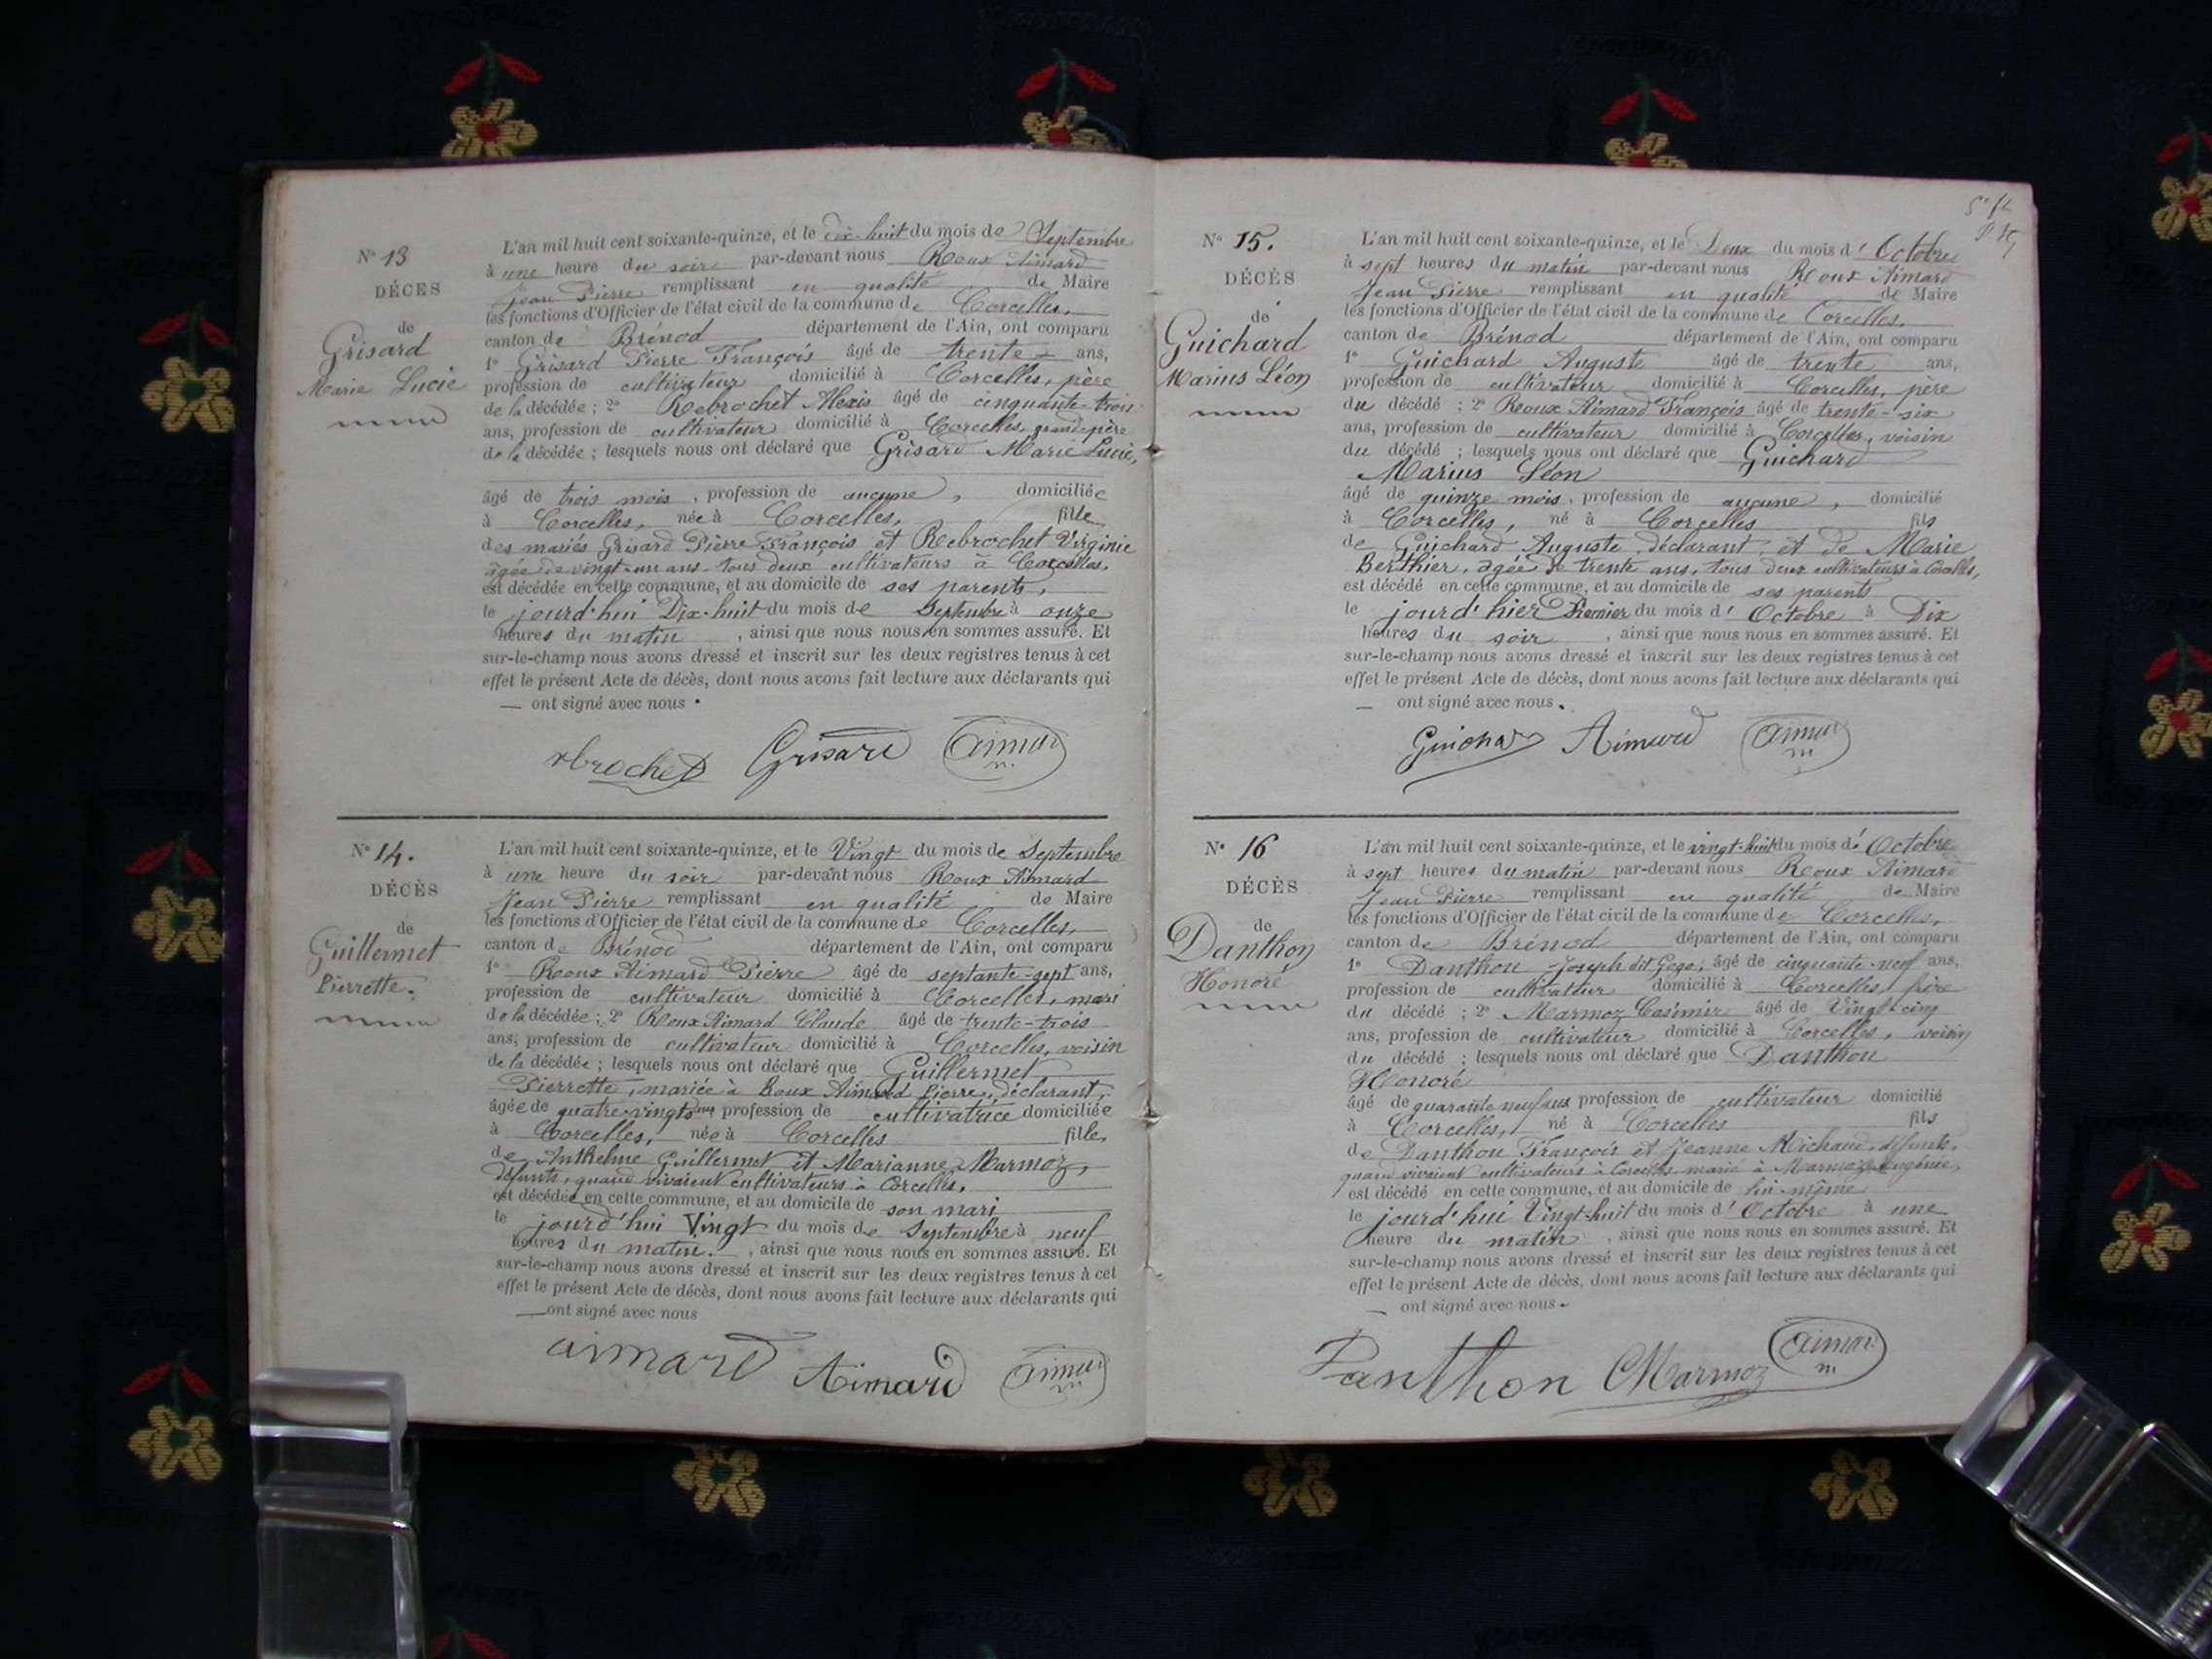 N° 13
DÉCÈS
de
Grisard
Marie Lucie
L'an mil huit cent soixante-quinze, et le dix huit du mois de Septembre
à une heure du soir par-devant nous Roux Aimard
Jean Pierre remplissant en qualité de Maire
les fonctions d'Officier de l'état civil de la commune de Corcelles,
canton de Brénod département de l'Ain, ont comparu
1° Grisard Pierre François âgé de trente ans,
profession de cultivateur domicilié à Corcelles, père
de la décédée ; 2° Rebrochet Alexis âgé de cinquante-trois
ans, profession de cultivateur domicilié à Corcelles, grand-père
de la décédée ; lesquels nous ont déclaré que Grisard Marie Lucie,
âgé de trois mois, profession de aucune, domiciliée
à Corcelles, née à Corcelles, fille
des mariés Grisard Pierre François et Rebrochet Virginie
âgée de vingt-un ans, tous deux cultivateurs à Corcelles,
est décédée en cette commune, et au domicile de ses parents,
le jourd'hui Dix-huit du mois de Septembre à onze
heures du matin, ainsi que nous nous en sommes assuré. Et
sur-le-champ nous avons dressé et inscrit sur les deux registres tenus à cet
effet le présent Acte de décès, dont nous avons fait lecture aux déclarants qui
— ont signé avec nous.
rbrochet Grisard Aimard
N° 14.
DÉCÈS
de
Guillermet
Pierrette.
L'an mil huit cent soixante-quinze, et le Vingt du mois de Septembre
à une heure du soir par-devant nous Roux Aimard
Jean Pierre remplissant en qualité de Maire
les fonctions d'Officier de l'état civil de la commune de Corcelles,
canton de Brénod département de l'Ain, ont comparu
1° Roux Aimard Pierre âgé de septante-sept ans,
profession de cultivateur domicilié à Corcelles, mari
de la décédée ; 2° Roux Aimard Claude âgé de trente-trois
ans, profession de cultivateur domicilié à Corcelles, voisin
de la décédée ; lesquels nous ont déclaré que Guillermet
Pierrette, mariée à Roux Aimard Pierre, déclarant,
âgée de quatre-vingts profession de cultivatrice domiciliée
à Corcelles, née à Corcelles fille,
de Anthelme Guillermet et Marianne Marmoz,
défunts, quand vivaient cultivateurs à Corcelles,
est décédée en cette commune, et au domicile de son mari
le jourd'hui Vingt du mois de Septembre à neuf
heures du matin, ainsi que nous nous en sommes assuré. Et
sur-le-champ nous avons dressé et inscrit sur les deux registres tenus à cet
effet le présent Acte de décès, dont nous avons fait lecture aux déclarants qui
— ont signé avec nous
aimard Aimard Aimard
N° 15.
DÉCÈS
de
Guichard
Marius Léon
L'an mil huit cent soixante-quinze, et le Deux du mois d'Octobre
à sept heures du matin par-devant nous Roux Aimard
Jean Pierre remplissant en qualité de Maire
les fonctions d'Officier de l'état civil de la commune de Corcelles,
canton de Brénod département de l'Ain, ont comparu
1° Guichard Auguste âgé de trente ans,
profession de cultivateur domicilié à Corcelles, père
du décédé ; 2° Roux Aimard François âgé de trente-six
ans, profession de cultivateur domicilié à Corcelles, voisin
du décédé ; lesquels nous ont déclaré que Guichard
Marius Léon
âgé de quinze mois, profession de aucune, domicilié
à Corcelles, né à Corcelles fils
de Guichard Auguste, déclarant, et de Marie
Berthier, agée de trente ans, tous deux cultivateurs à Corcelles,
est décédé en cette commune, et au domicile de ses parents
le jourd'hier Premier du mois d'Octobre à Dix
heures du soir, ainsi que nous nous en sommes assuré. Et
sur-le-champ nous avons dressé et inscrit sur les deux registres tenus à cet
effet le présent Acte de décès, dont nous avons fait lecture aux déclarants qui
— ont signé avec nous.
Guichard Aimard Aimard
N° 16
DÉCÈS
de
Danthon
Honoré
L'an mil huit cent soixante-quinze, et le vingt-huit du mois d'Octobre
à sept heures du matin par-devant nous Roux Aimard
Jean Pierre remplissant en qualité de Maire
les fonctions d'Officier de l'état civil de la commune de Corcelles,
canton de Brénod département de l'Ain, ont comparu
1° Danthon Joseph dit Gego, âgé de cinquante-neuf ans,
profession de cultivateur domicilié à Corcelles, frère
du décédé ; 2° Marmoz Casimir âgé de Vingt-cinq
ans, profession de cultivateur domicilié à Corcelles, voisin
du décédé ; lesquels nous ont déclaré que Danthon
Honoré
âgé de quarante neuf ans profession de cultivateur domicilié
à Corcelles, né à Corcelles fils
de Danthon François et Jeanne Michaud, défunts,
quand vivaient cultivateurs à Corcelles marié à Marmoz Eugénie,
est décédé en cette commune, et au domicile de lui-même
le jourd'hui Vingt-huit du mois d'Octobre à une
heure du matin, ainsi que nous nous en sommes assuré. Et
sur-le-champ nous avons dressé et inscrit sur les deux registres tenus à cet
effet le présent Acte de décès, dont nous avons fait lecture aux déclarants qui
— ont signé avec nous.
Danthon CMarmoz Aimard